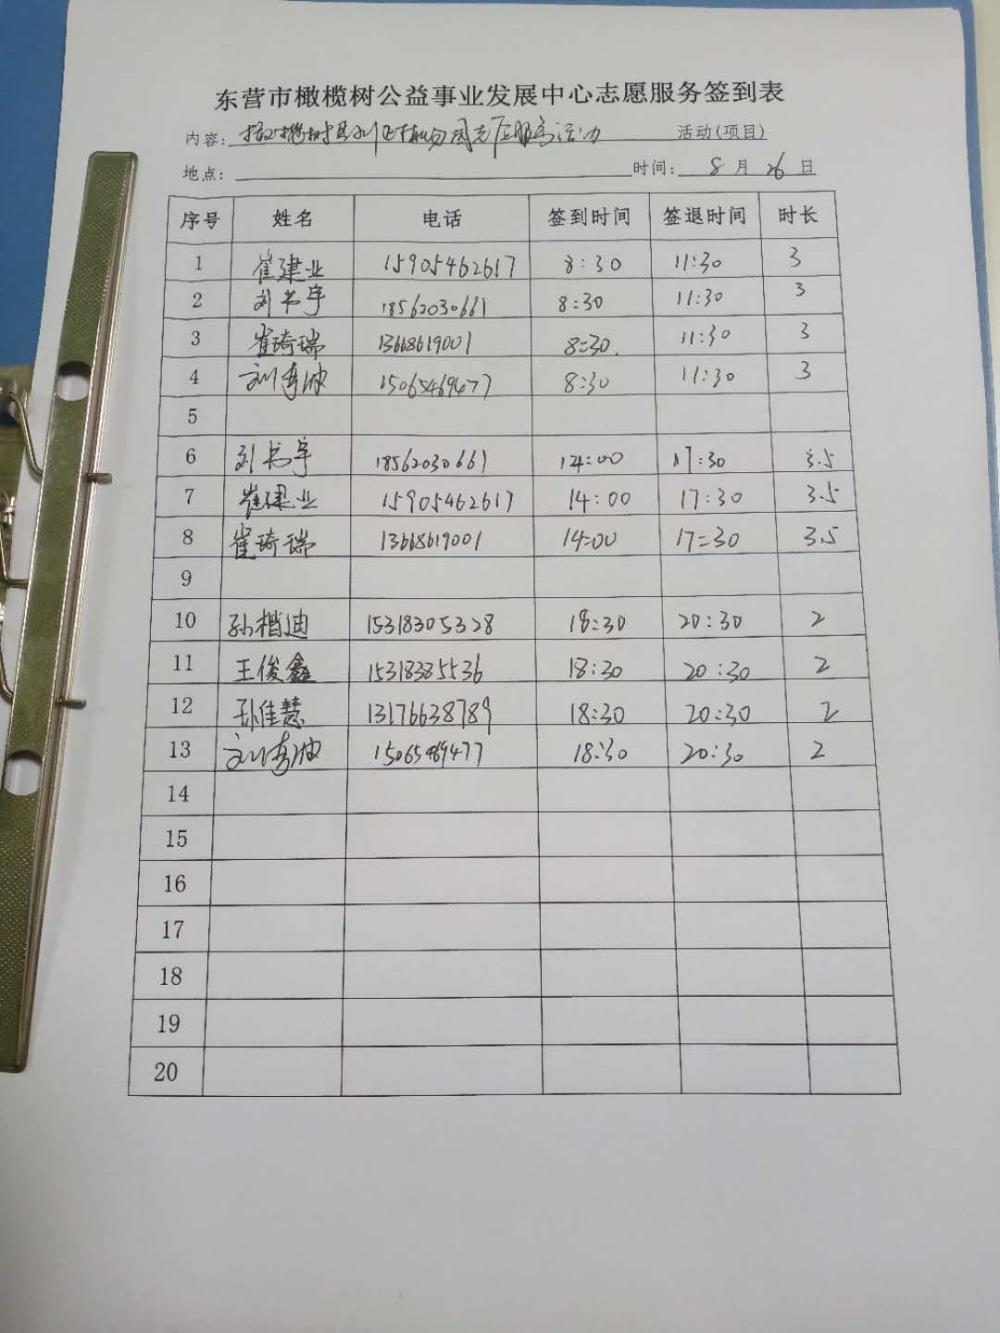 东营市橄榄树公益事业发展中心志愿服务签到表
内容: 活动(项目)
地点: 时间: 8 月 26 日
序号 姓名 电话 签到时间 签退时间 时长
1 崔建业 15905462617 8:30 11:30 3
2 刘书宇 18562030661 8:30 11:30 3
3 崔琦瑞 13668619001 8:30 11:30 3
4 15065469477 8:30 11:30 3
5
6 刘书宇 18562030661 14:00 17:30 3.5
7 崔建业 15905462617 14:00 17:30 3.5
8 崔琦瑞 13668619001 14:00 17:30 3.5
9
10 孙楷迪 15318305328 18:30 20:30 2
11 王俊鑫 15318385536 18:30 20:30 2
12 孙佳慧 13176638789 18:30 20:30 2
13 15065469477 18:30 20:30 2
14
15
16
17
18
19
20